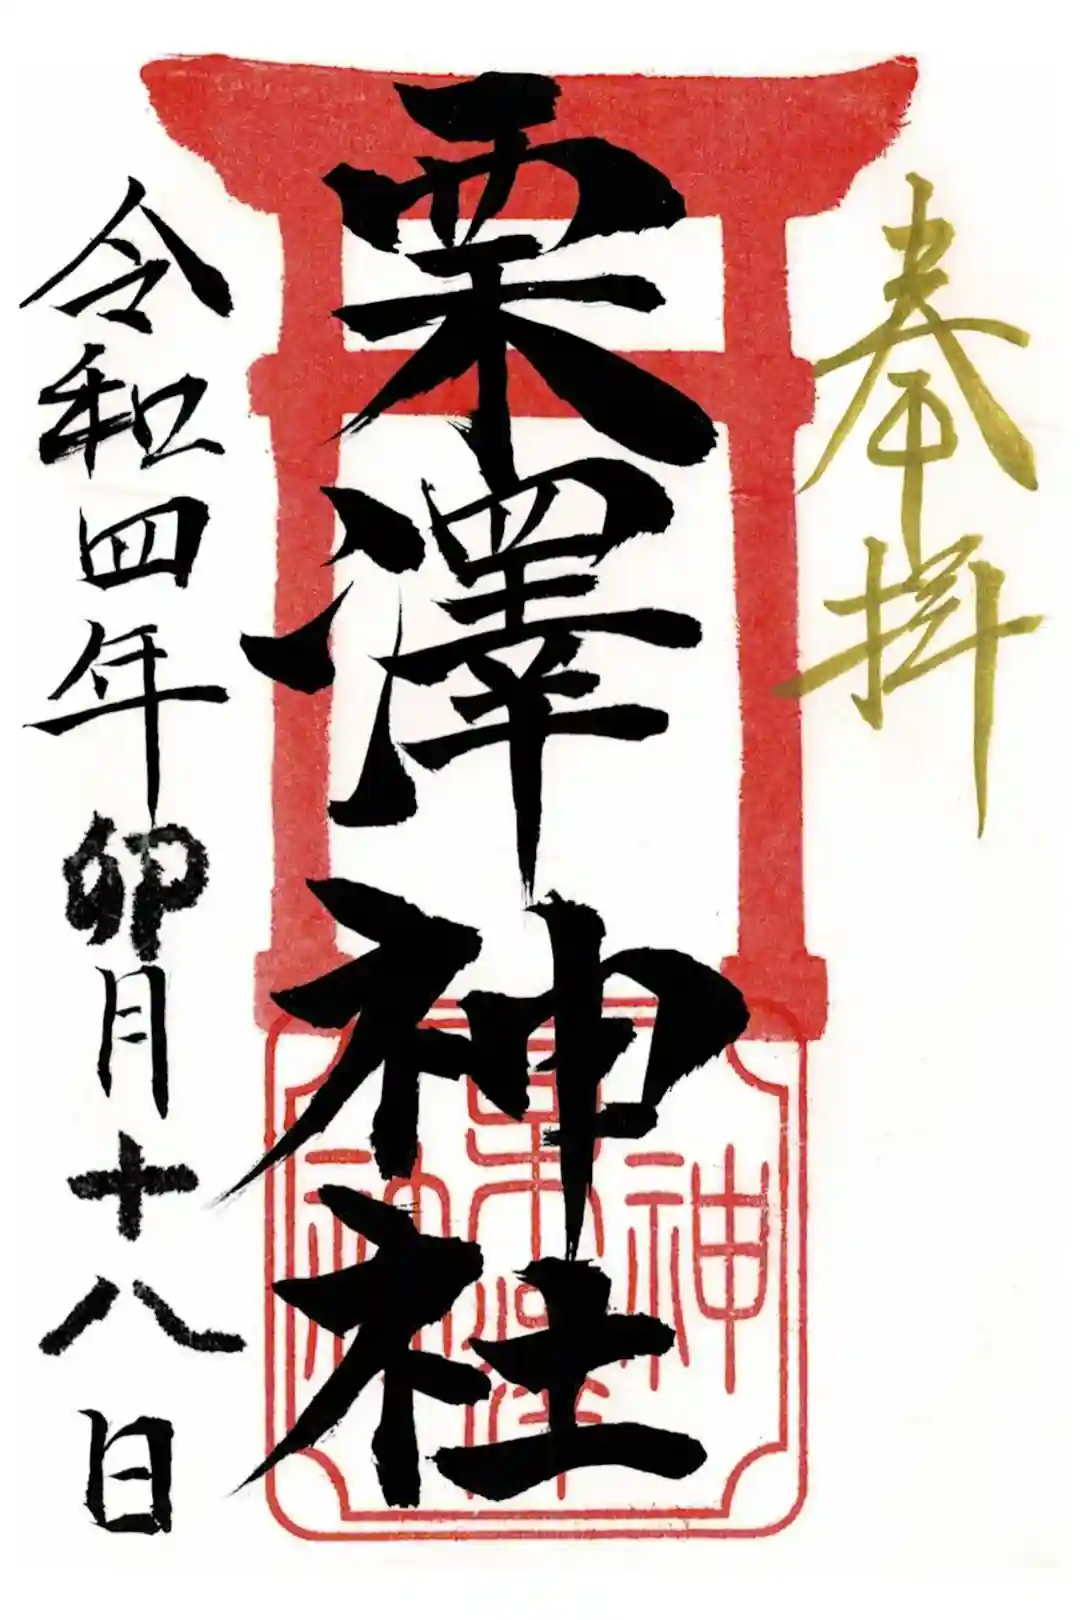 奉拝
栗澤神社
令和四年卯月十八日
栗澤神社